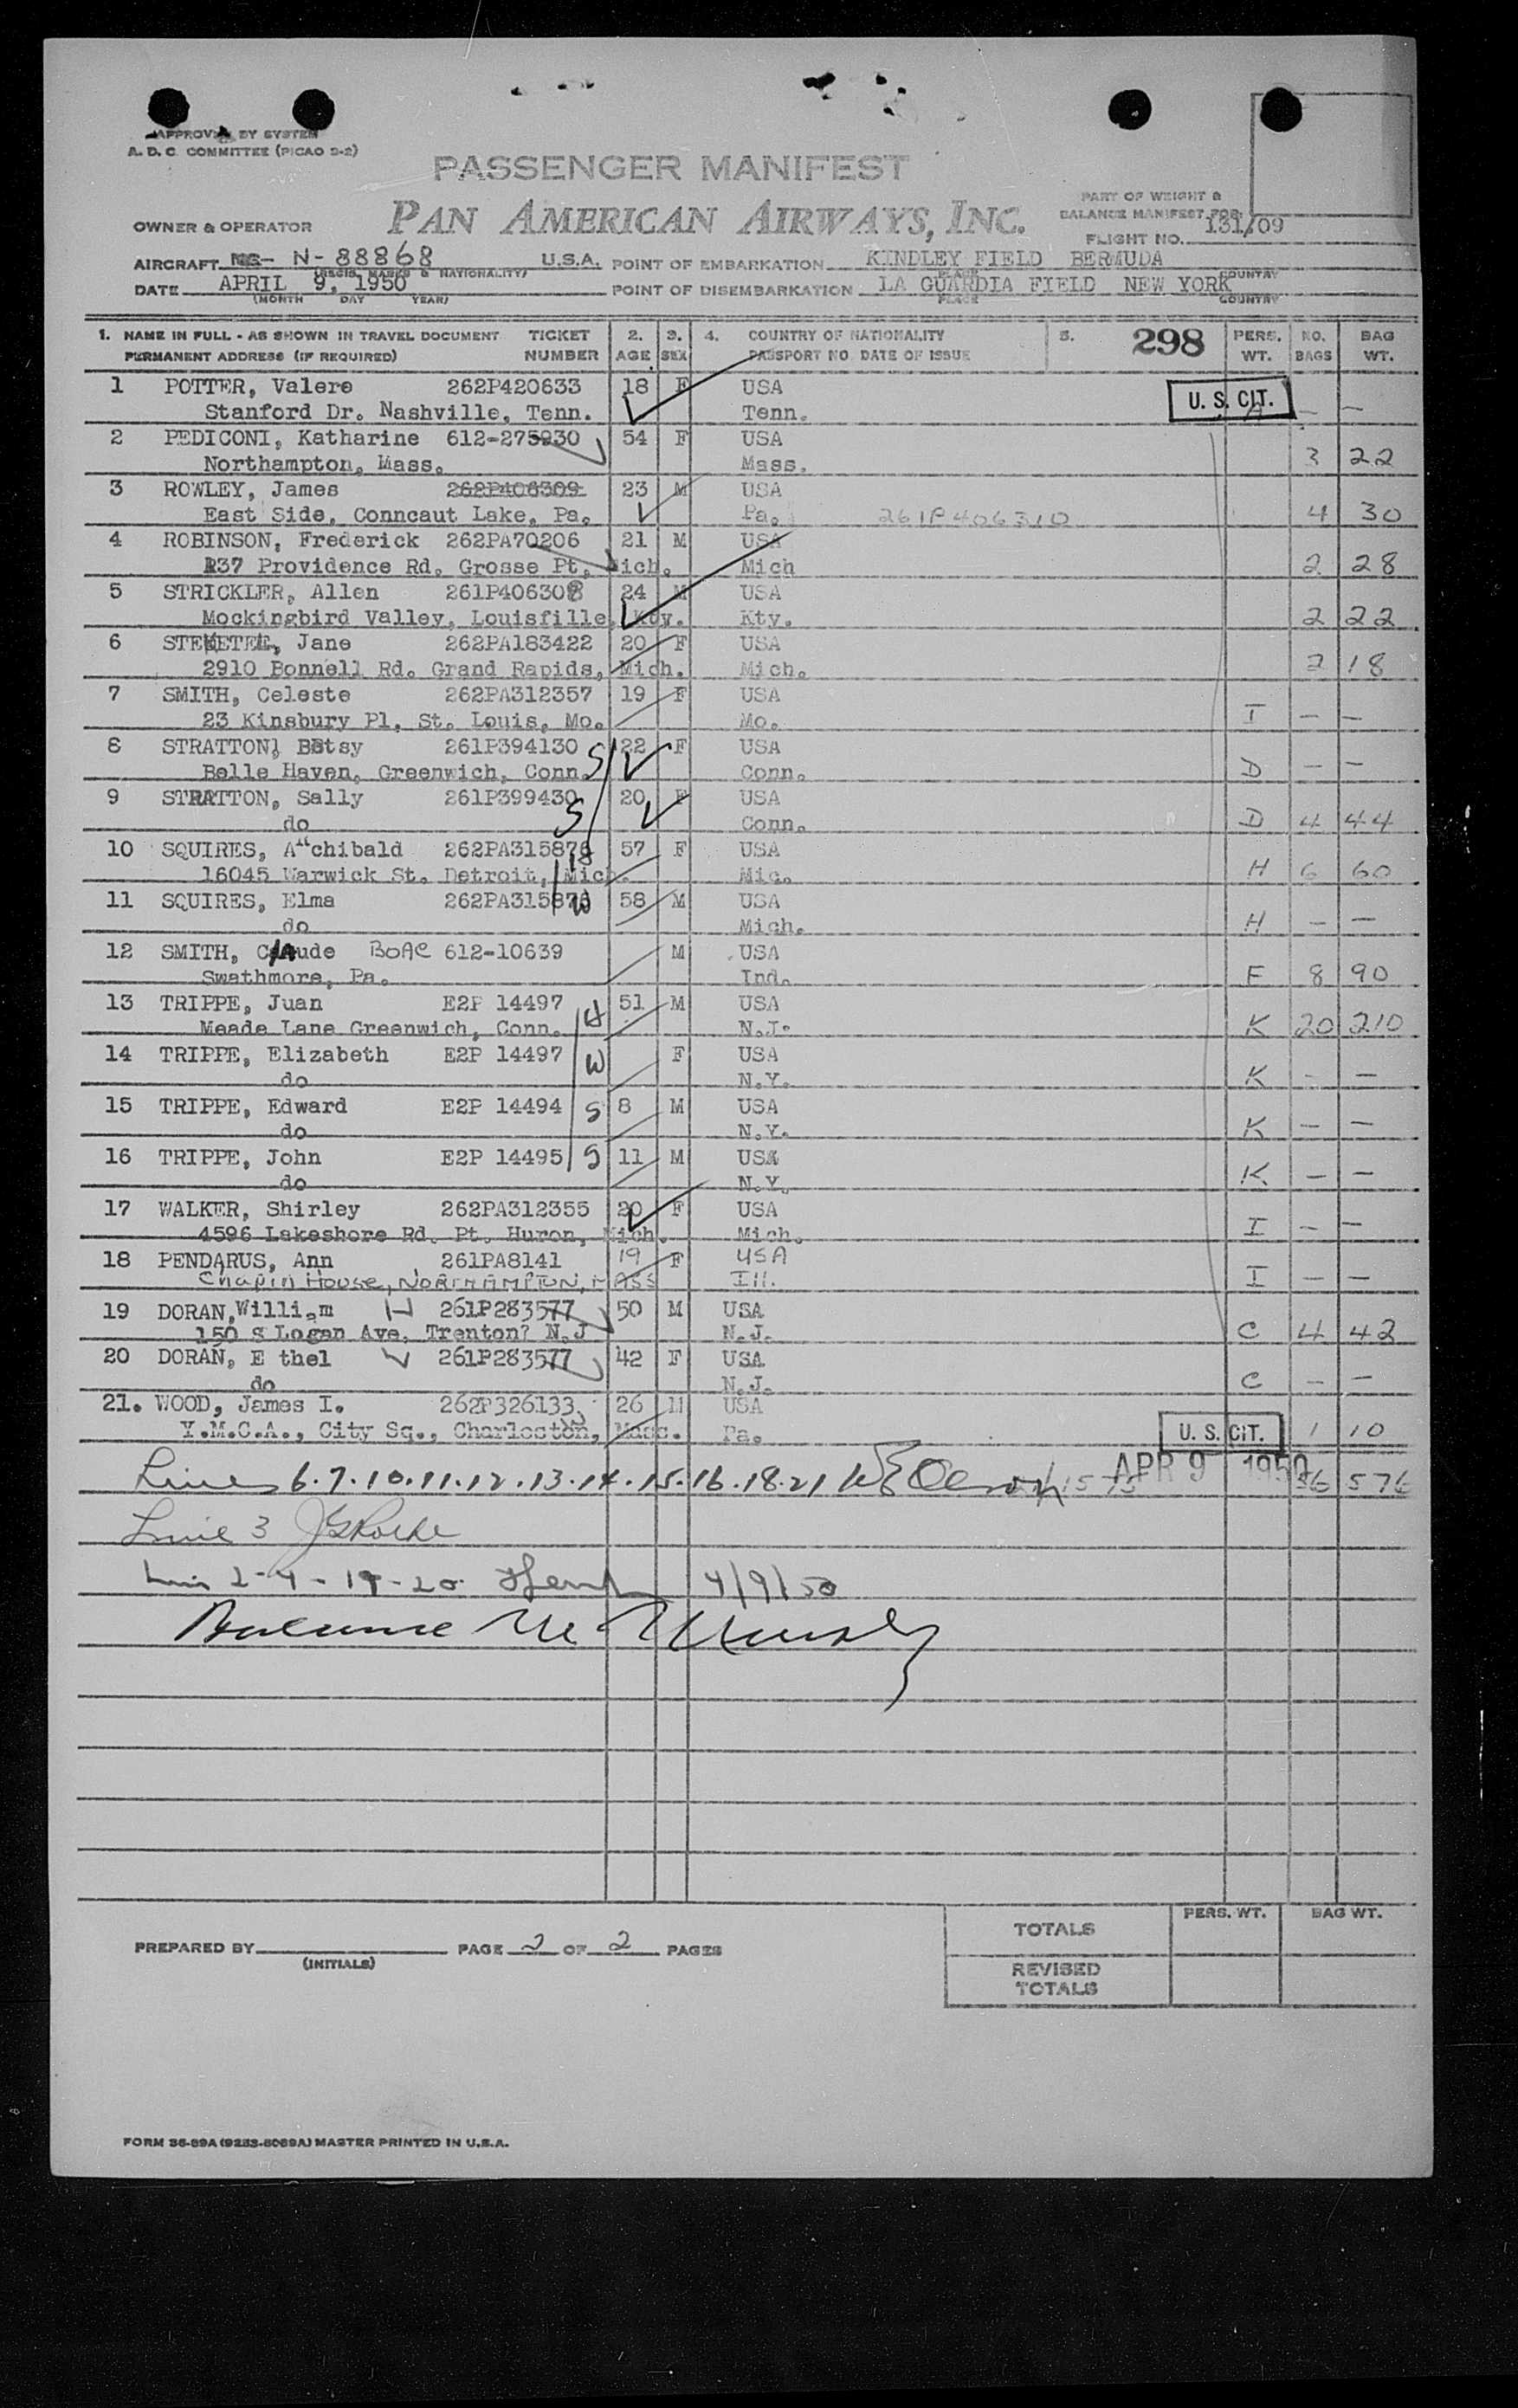 APPROVED BY SYSTEM
A. D. C. COMMITTEE (PICAO 2-2)
PASSENGER MANIFEST
PART OF WEIGHT &
BALANCE MANIFEST FOR
OWNER & OPERATOR PAN AMERICAN AIRWAYS, INC.
FLIGHT NO. 131/09
AIRCRAFT N-88868 U.S.A. POINT OF EMBARKATION KINDLEY FIELD BERMUDA
(REGIS. MARKS & NATIONALITY) PLACE COUNTRY
DATE APRIL 9, 1950 POINT OF DISEMBARKATION LA GUARDIA FIELD NEW YORK
(MONTH DAY YEAR) PLACE COUNTRY
1. NAME IN FULL - AS SHOWN IN TRAVEL DOCUMENT TICKET 2. 3. 4. COUNTRY OF NATIONALITY 5. 298 PERS. NO. BAG
PERMANENT ADDRESS (IF REQUIRED) NUMBER AGE SEX PASSPORT NO. DATE OF ISSUE WT. BAGS WT.
1 POTTER, Valere 262P420633 18 F USA
Stanford Dr. Nashville, Tenn. Tenn. U. S. CIT. — —
2 PEDICONI, Katharine 612-275930 54 F USA
Northampton, Mass. Mass. 3 22
3 ROWLEY, James 262P406309 23 M USA
East Side, Conncaut Lake, Pa. Pa. 261P406310 4 30
4 ROBINSON, Frederick 262PA70206 21 M USA
137 Providence Rd. Grosse Pt. Mich. Mich 2 28
5 STRICKLER, Allen 261P406308 24 M USA
Mockingbird Valley, Louisfille, Kty. Kty. 2 22
6 STEKETEE, Jane 262PA183422 20 F USA
2910 Bonnell Rd. Grand Rapids, Mich. Mich. 2 18
7 SMITH, Celeste 262PA312357 19 F USA
23 Kinsbury Pl. St. Louis, Mo. Mo. I — —
8 STRATTON, Betsy 261P394130 S 22 F USA
Belle Haven, Greenwich, Conn. Conn. D — —
9 STRATTON, Sally 261P399430 S 20 F USA
do Conn. D 4 44
10 SQUIRES, Archibald 262PA315876 57 F USA
16045 Warwick St. Detroit, Mich. Mic. H 6 60
11 SQUIRES, Elma 262PA315876 W 58 M USA
do Mich. H — —
12 SMITH, Claude BOAC 612-10639 M USA
Swathmore, Pa. Ind. F 8 90
13 TRIPPE, Juan E2P 14497 H 51 M USA
Meade Lane Greenwich, Conn. N.J. K 20 210
14 TRIPPE, Elizabeth E2P 14497 W F USA
do N.Y. K — —
15 TRIPPE, Edward E2P 14494 S 8 M USA
do N.Y. K — —
16 TRIPPE, John E2P 14495 S 11 M USA
do N.Y. K — —
17 WALKER, Shirley 262PA312355 20 F USA
4596 Lakeshore Rd. Pt. Huron, Mich. Mich. I — —
18 PENDARUS, Ann 261PA8141 19 F USA
Chapin House, NORTHAMPTON, MASS Ill. I — —
19 DORAN, William H 261P283577 50 M USA
150 S Logan Ave. Trenton? N.J N.J. C 4 42
20 DORAN, E thel W 261P283577 42 F USA
do N.J. C — —
21. WOOD, James I. 262P326133 26 M USA
Y.M.C.A., City Sq., Charleston, Mass. Pa. U. S. CIT. 1 10
Lines 6.7.10.11.12.13.14.15.16.18.21 W E Olson APR 9 1950 56 576
Line 3
Lines 2-4-19-20 4/9/50
Balance
PREPARED BY PAGE 2 OF 2 PAGES
(INITIALS)
PERS. WT. BAG WT.
TOTALS
REVISED
TOTALS
FORM 36-89A (9283-8089A) MASTER PRINTED IN U.S.A.